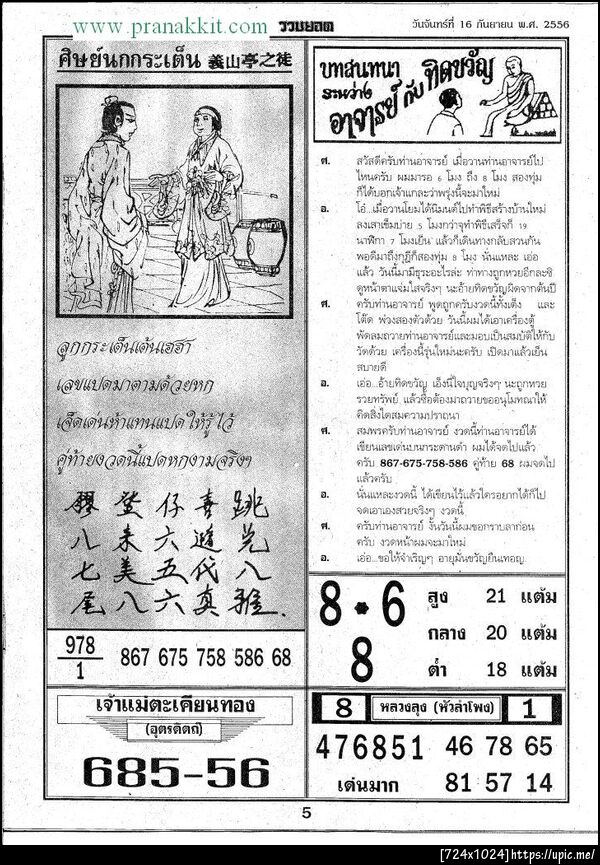 www.pranakkit.com
รวบยอด
วันจันทร์ที่ 16 กันยายน พ.ศ. 2556
ศิษย์นกกระเต็น 義山亭之徒
ลูกกระเต็นเต้นเฮฮา
เลขแปดมาตามด้วยหก
เจ็ดเด่นห้าแทนแปดให้รู้ไว้
คู่ท้ายงวดนี้แปดหกงามจริงๆ
登 仔 喜 跳
八 来 六 遊 兄
七 美 五 代 八
尾 八 六 真 雅.
978
1
867 675 758 586 68
เจ้าแม่ตะเคียนทอง
(อุตรดิตถ์)
685-56
บทสนทนา
ระหว่าง
อาจารย์ กับ ทิดขวัญ
ศ. สวัสดีครับท่านอาจารย์ เมื่อวานท่านอาจารย์ไป
ไหนครับ ผมมารอ 6 โมง ถึง 8 โมง สองทุ่ม
ก็ได้บอกเจ้าแกละว่าพรุ่งนี้จะมาใหม่
อ. โอ๋...เมื่อวานโยมได้นิมนต์ไปทำพิธีสร้างบ้านใหม่
ลงเสาเข็มบ่าย 5 โมงกว่าจุทำพิธีเสร็จก็ 19
นาฬิกา 7 โมงเย็น แล้วก็เดินทางกลับสวนกัน
พอดีมาถึงกุฏิก็สองทุ่ม 8 โมง นั่นแหละ เอ่อ
แล้ว วันนี้มามีธุระอะไรล่ะ ท่าทางถูกหวยอีกละซิ
ดูหน้าตาแจ่มใสจริงๆ นะอ้ายทิดขวัญผิดจากต้นปี
ศ. ครับท่านอาจารย์ พูดถูกครับงวดนี้ทั้งเต็ง และ
โต๊ด พ่วงสองตัวด้วย วันนี้ผมได้เอาเครื่องตู้
พัดลมถวายท่านอาจารย์และมอบเป็นสมบัติให้กับ
วัดด้วย เครื่องนี้รุ่นใหม่นะครับ เปิดมาแล้วเย็น
สบายดี
อ. เอ่อ...อ้ายทิดขวัญ เอ็งนี่ใจบุญจริงๆ นะถูกหวย
รวยทรัพย์ แล้วซื้อต้องมาถวายขออนุโมทณาให้
คิดสิ่งใดสมความปราถนา
ศ. สมพรครับท่านอาจารย์ งวดนี้ท่านอาจารย์ได้
เขียนเลขเด่นบนกระดานดำ ผมได้จดไปแล้ว
ครับ 867-675-758-586 คู่ท้าย 68 ผมจดไป
แล้วครับ
อ. นั่นแหละงวดนี้ ได้เขียนไว้แล้วใครอยากได้ก็ไป
จดเอาเองสวยจริงๆ งวดนี้
ศ. ครับท่านอาจารย์ งั้นวันนี้ผมขอกราบลาก่อน
ครับ งวดหน้าผมจะมาใหม่
อ. เอ่อ...ขอให้จำเริญๆ อายุมั่นขวัญยืนเทอญ
8 * 6
8
สูง 21 แต้ม
กลาง 20 แต้ม
ต่ำ 18 แต้ม
8 หลวงลุง (หัวลำโพง) 1
476851 46 78 65
เด่นมาก 81 57 14
5
[724x1024]https://upic.me/